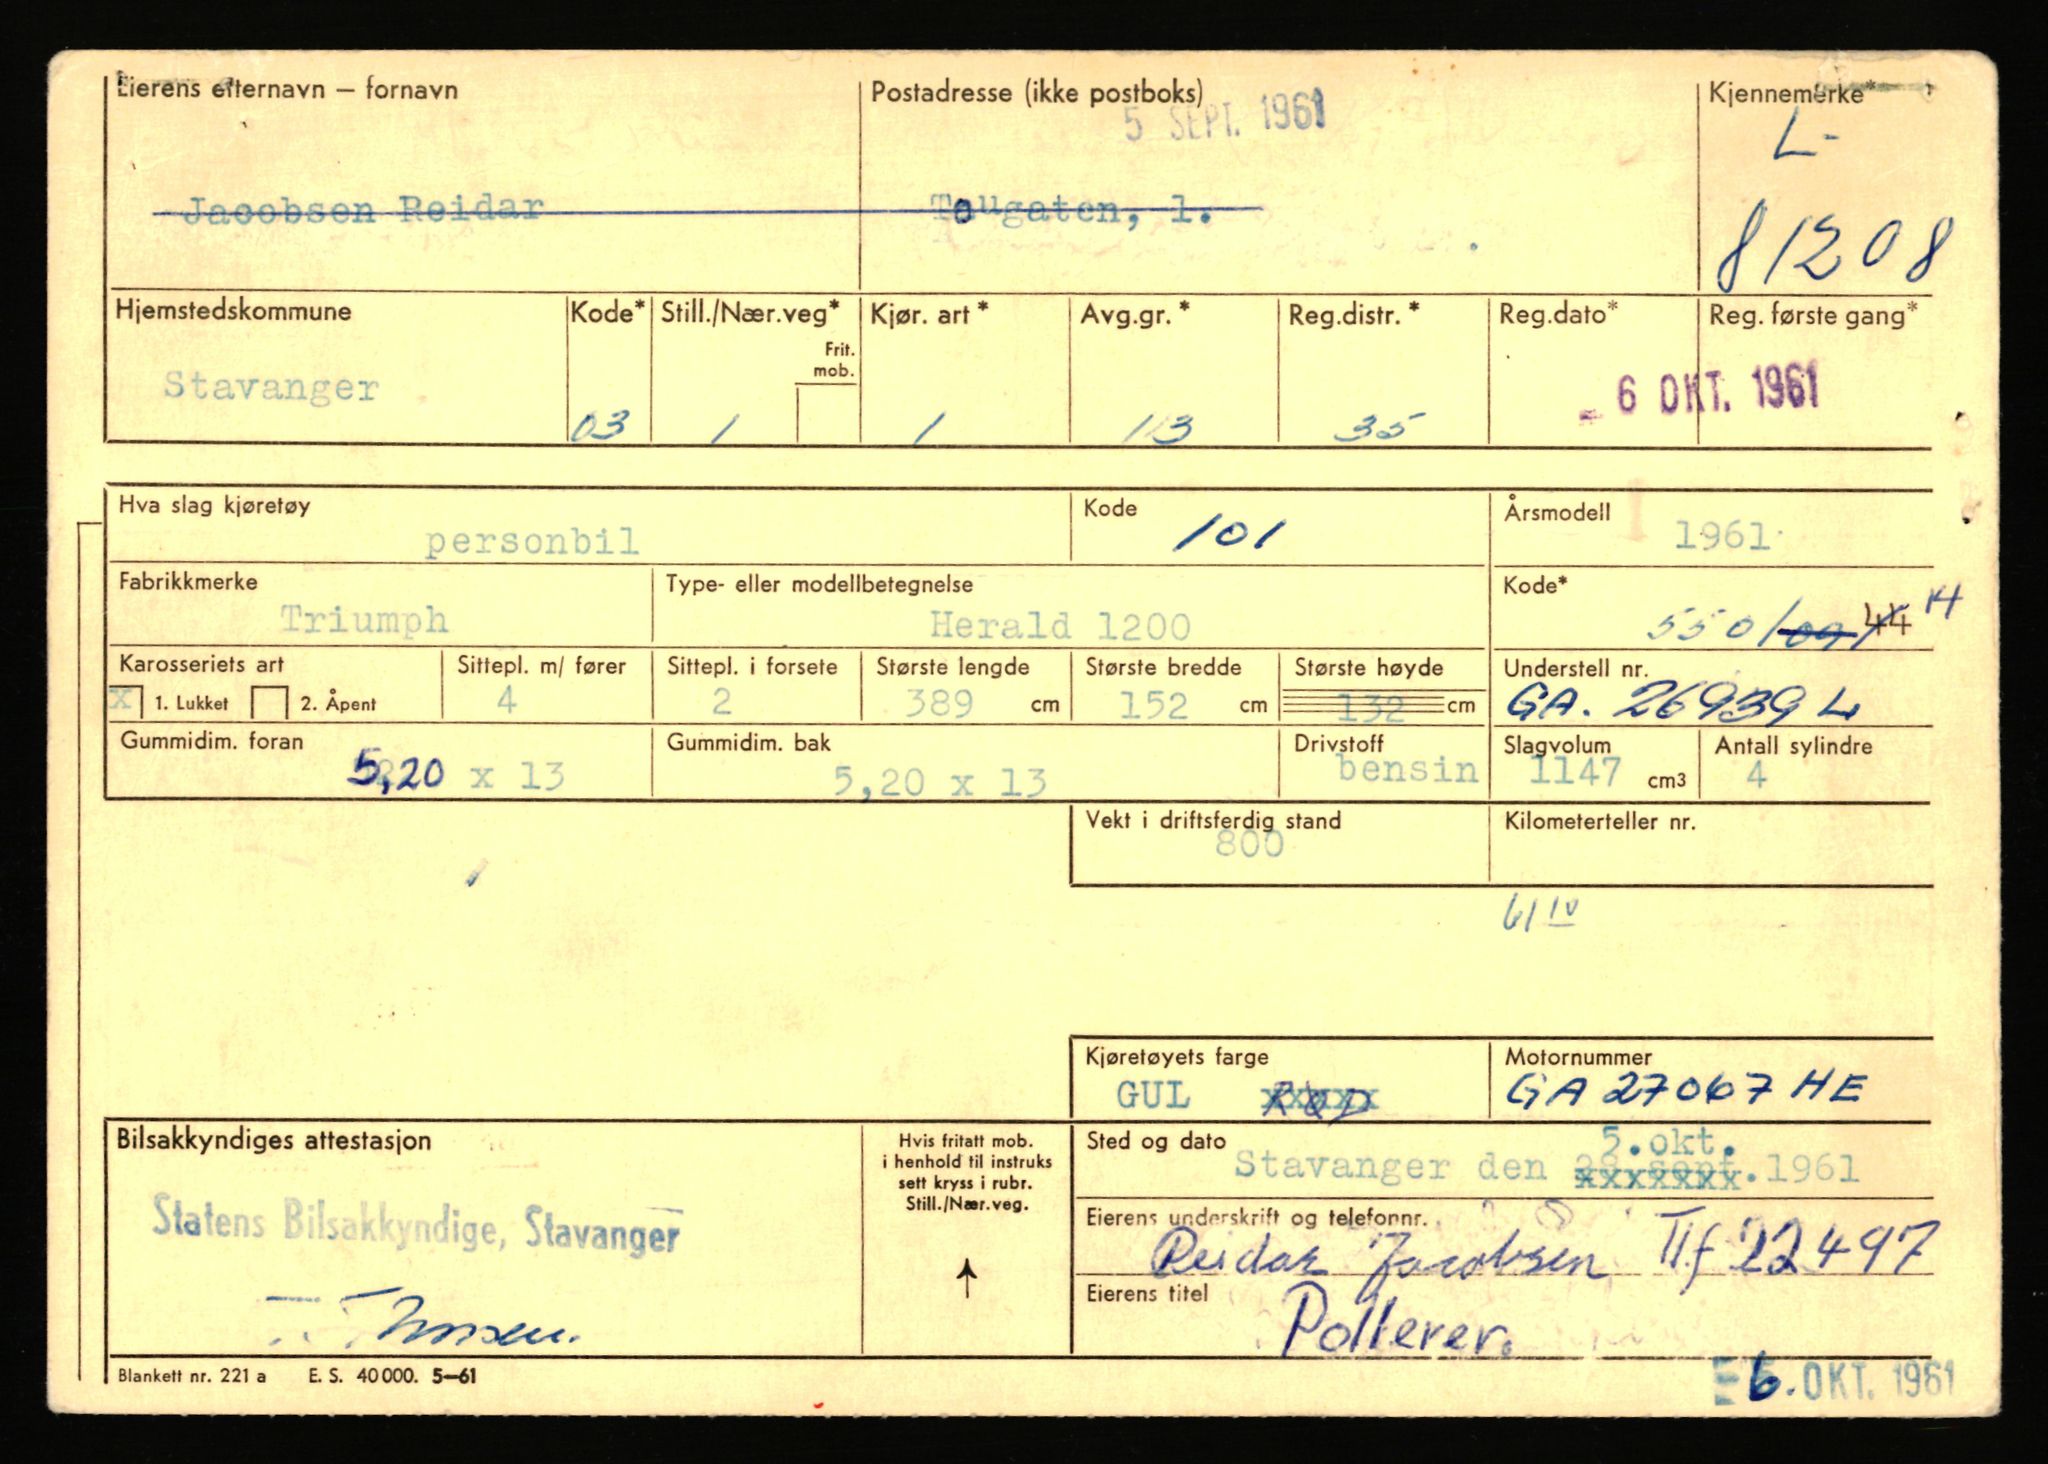 Eierens efternavn — fornavn
Postadresse (ikke postboks)
Kjennemerke*
5 SEPT. 1961
L-
Jacobsen Reidar
Tougaten, 1.
81208
Hjemstedskommune
Kode*
Still./Nær.veg*
Kjør. art *
Avg.gr. *
Reg.distr. *
Reg.dato*
Reg. første gang*
Frit. mob.
Stavanger
03
1
1
113
35
- 6 OKT. 1961
Hva slag kjøretøy
personbil
Kode
101
Årsmodell
1961
Fabrikkmerke
Triumph
Type- eller modellbetegnelse
Herald 1200
Kode*
550/ 44 14
Karosseriets art
x 1. Lukket
2. Åpent
Sittepl. m/ fører
4
Sittepl. i forsete
2
Største lengde
389 cm
Største bredde
152 cm
Største høyde
132 cm
Understell nr.
GA. 26939 L
Gummidim. foran
5,20 x 13
Gummidim. bak
5,20 x 13
Drivstoff
bensin
Slagvolum
1147 cm3
Antall sylindre
4
Vekt i driftsferdig stand
800
Kilometerteller nr.
61 IV
Kjøretøyets farge
GUL RØD
Motornummer
GA 27067 HE
Bilsakkyndiges attestasjon
Statens Bilsakkyndige, Stavanger
Hvis fritatt mob.
i henhold til instruks
sett kryss i rubr.
Still./Nær.veg.
Sted og dato
5.okt.
Stavanger den xxxxxxx.1961
Eierens underskrift og telefonnr.
Reidar Jacobsen Tlf 22497
Eierens titel
Pollerer.
Blankett nr. 221 a E. S. 40 000. 5—61
6. OKT. 1961